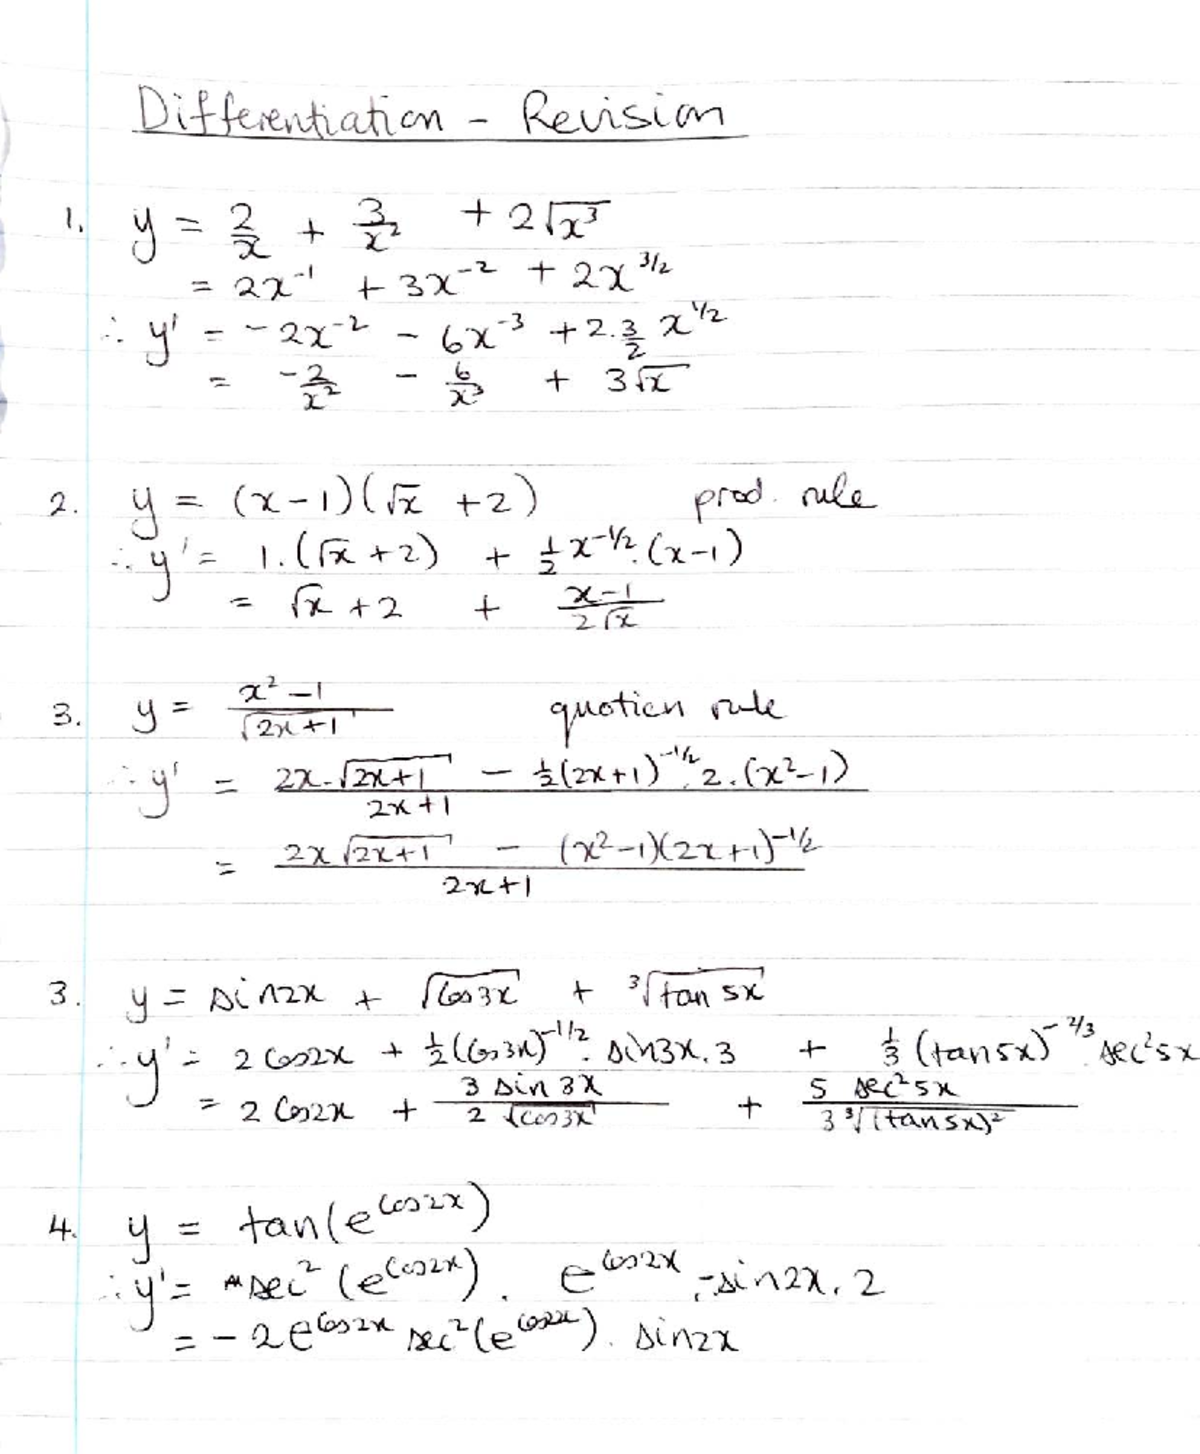 Differentiation - Revision
1. y = 2/x + 3/x² + 2√x³
= 2x⁻¹ + 3x⁻² + 2x^3/2
∴ y' = -2x⁻² - 6x⁻³ + 2.3/2 x^1/2
= -2/x² - 6/x³ + 3√x
2. y = (x-1)(√x +2) prod. rule
∴ y' = 1.(√x +2) + 1/2 x^-1/2.(x-1)
= √x +2 + x-1/2√x
3. y = x²-1/√2x+1 quotien rule
∴ y' = 2x.√2x+1 - 1/2(2x+1)^-1/2.2.(x²-1)/2x+1
= 2x√2x+1 - (x²-1)(2x+1)^-1/2/2x+1
3. y = sin2x + √cos3x + ³√tan5x
∴ y' = 2cos2x + 1/2(cos3x)^-1/2.sin3x.3 + 1/3(tan5x)^-2/3.sec²5x
= 2cos2x + 3sin3x/2√cos3x + 5sec²5x/3³√(tan5x)²
4. y = tan(e^cos2x)
∴ y' = sec²(e^cos2x). e^cos2x.-sin2x.2
= -2e^cos2x sec²(e^cos2x). sin2x